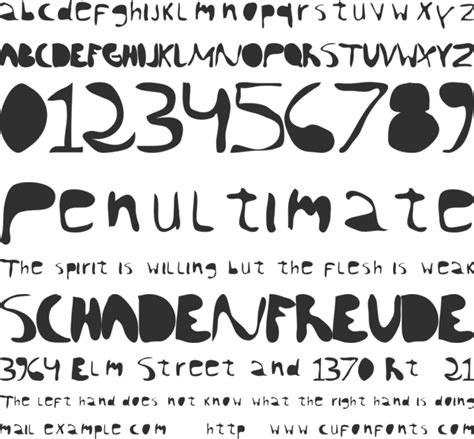 abcdefghijklmnopqrstuvwxyz
ABCDEFGHIJKLMNOPQRSTUVWXYZ
0123456789
Penultimate
The spirit is willing but the flesh is weak
SCHADENFREUDE
3964 Elm Street and 1370 Rt 21
The left hand does not know what the right hand is doing
mail example com http www cufonfonts com